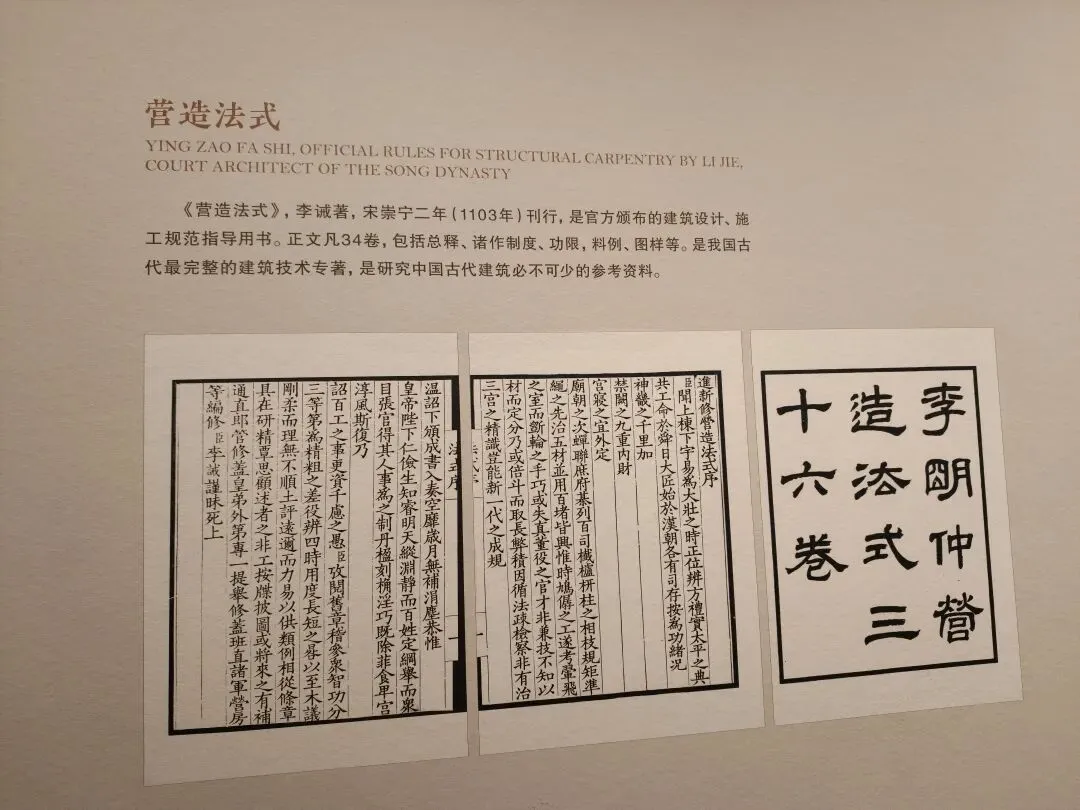 营造法式
YING ZAO FA SHI, OFFICIAL RULES FOR STRUCTURAL CARPENTRY BY LI JIE,
COURT ARCHITECT OF THE SONG DYNASTY
《营造法式》，李诫著，宋崇宁二年（1103年）刊行，是官方颁布的建筑设计、施
工规范指导用书。正文凡34卷，包括总释、诸作制度、功限，料例、图样等。是我国古
代最完整的建筑技术专著，是研究中国古代建筑必不可少的参考资料。
李朙仲營
造法式三
十六卷
進新修營造法式序
臣聞上棟下宇易爲大壯之時正位辨方禮實太平之典
共工命於舜日大匠始於漢朝各有司存按爲功緒況
神畿之千里加
禁闕之九重内財
宮寢之宜外定
廟朝之次蟬聯庶府棊列百司櫼櫨枅柱之相枝規矩準
繩之先治五材並用百堵皆興惟時鳩僝之工遂考翬飛
之室而斵輪之手巧或失真董役之官才非兼技不知以
材而定分乃或倍斗而取長弊積因循法疎檢察非有治
三宮之精識豈能新一代之成規
法式序
温詔下頒成書入奏空靡歳月無補涓塵恭惟
皇帝陛下仁儉生知睿明天縱淵靜而百姓定綱舉而衆
目張官得其人事爲之制丹楹刻桷淫巧既除菲食卑宮
淳風斯復乃
詔百工之事更資千慮之愚臣攷閲舊章稽參衆智功分
三等第爲精粗之差役辨四時用度長短之晷以至木議
剛柔而理無不順土評逺邇而力易以供類例相從條章
具在研精覃思顧述者之非工按牒披圖或將來之有補
通直郎管修蓋皇弟外第專一提舉修蓋班直諸軍營房
等編修臣李誡謹昧死上